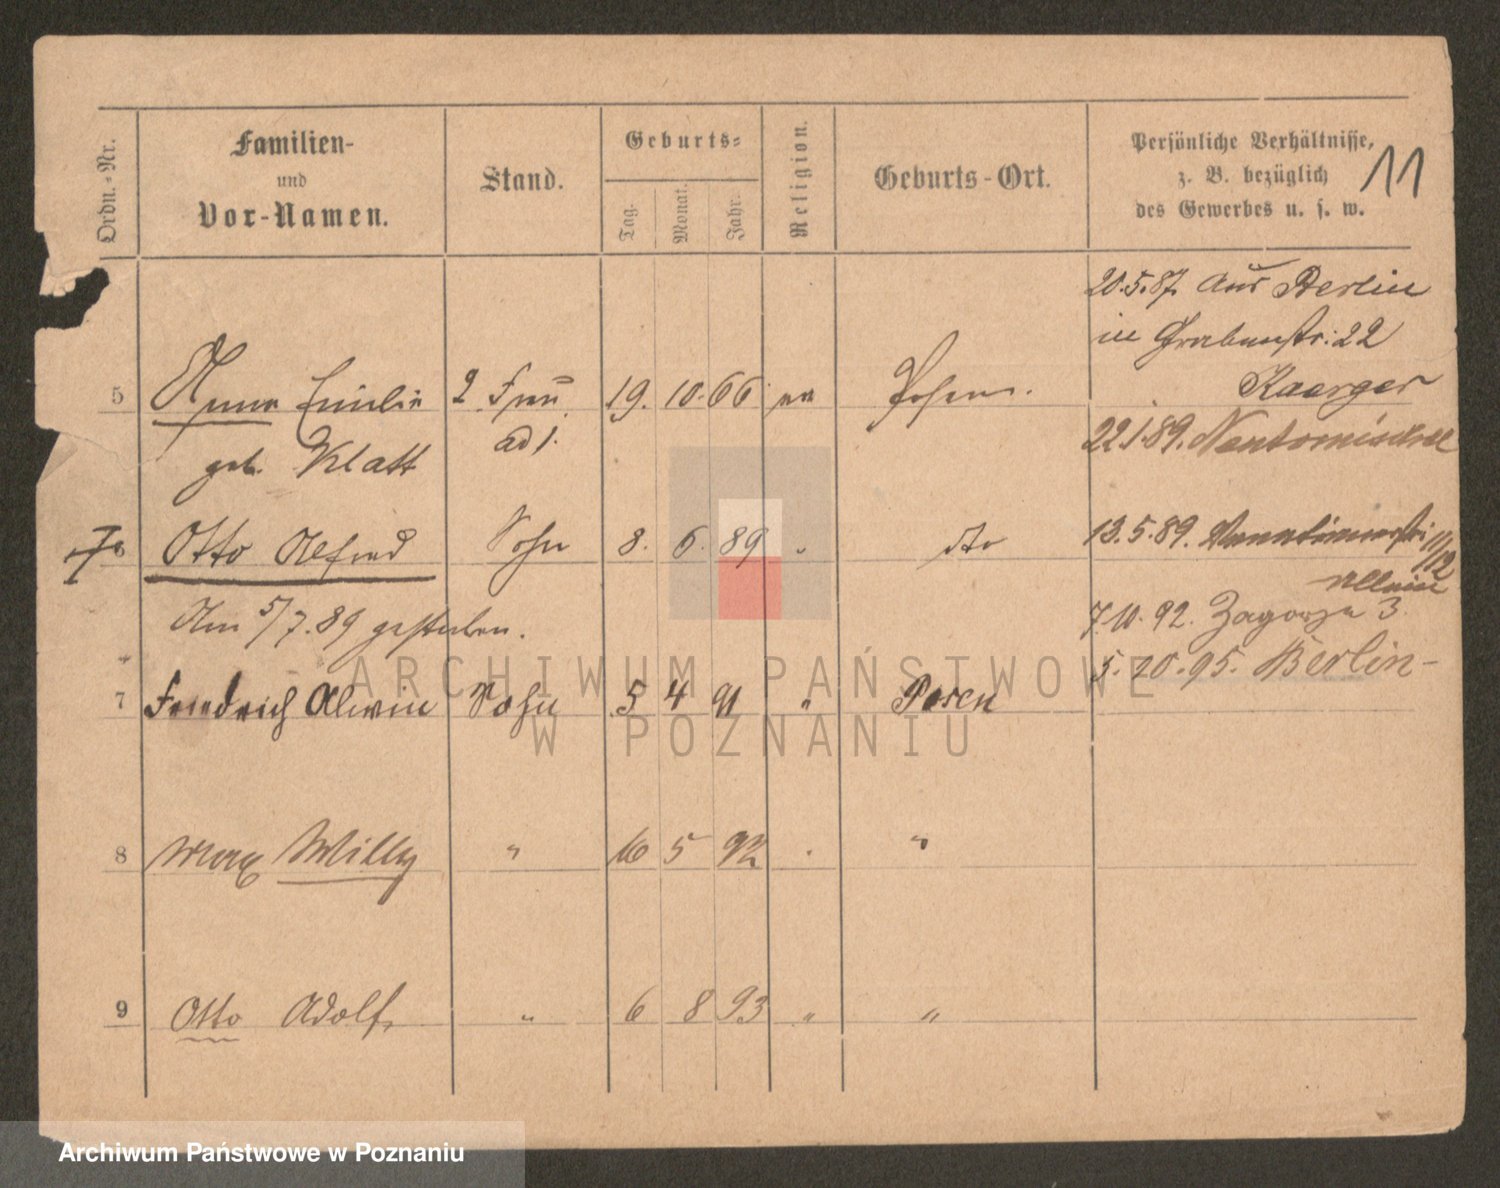 Ordn.-Nr.
Familien-
und
Vor-Namen.
Stand.
Geburts-
Tag. Monat. Jahr.
Religion.
Geburts-Ort.
Persönliche Verhältnisse,
z. B. bezüglich
des Gewerbes u. s. w.
11
20.5.87. aus Berlin
in Grabenstr: 22
Kaerger
5 Anna Emilie 2. Frau 19. 10. 66 ev Posen.
ad 1.
geb. Klatt
22.1.89. Neutomischel
Otto Alfred Sohn 8. 6. 89 " dto
13.5.89. 11/12
allein
Am 5/7.89 gestorben.
7.10.92. Zagorze 3.
5.10.95. Berlin-
7 Friedrich Alwin Sohn 5 4 91 " Posen
8 Max Willy " 16 5 92 " "
9 Otto Adolf, " 6 8 93 " "
ARCHIWUM PAŃSTWOWE
W POZNANIU
Archiwum Państwowe w Poznaniu